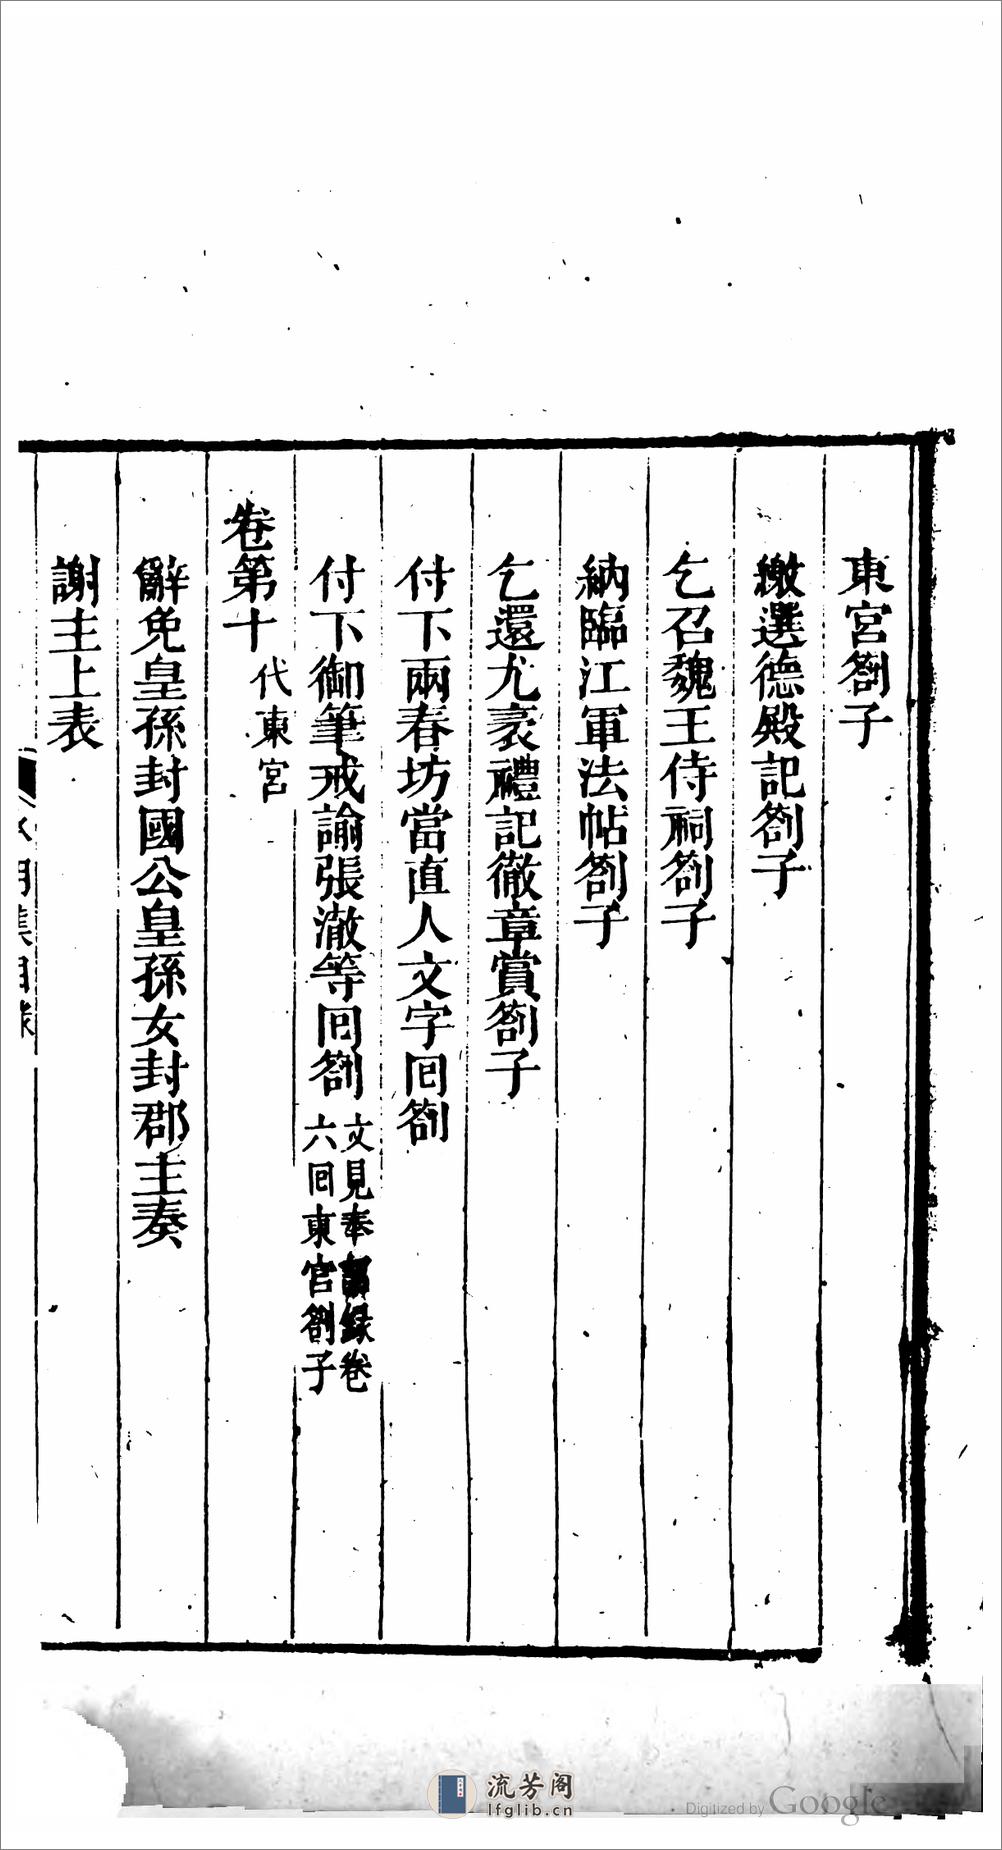 東宮劄子
繳選德殿記劄子
乞召魏王侍祠劄子
納臨江軍法帖劄子
乞還尤袤禮記徹章賞劄子
付下兩春坊當直人文字回劄
付下御筆戒諭張澈等回劄 文見奉詔録卷
六回東宮劄子
卷第十 代東宮
辭免皇孫封國公皇孫女封郡主奏
謝主上表
流芳阁
lfglib.cn
Digitized by Google